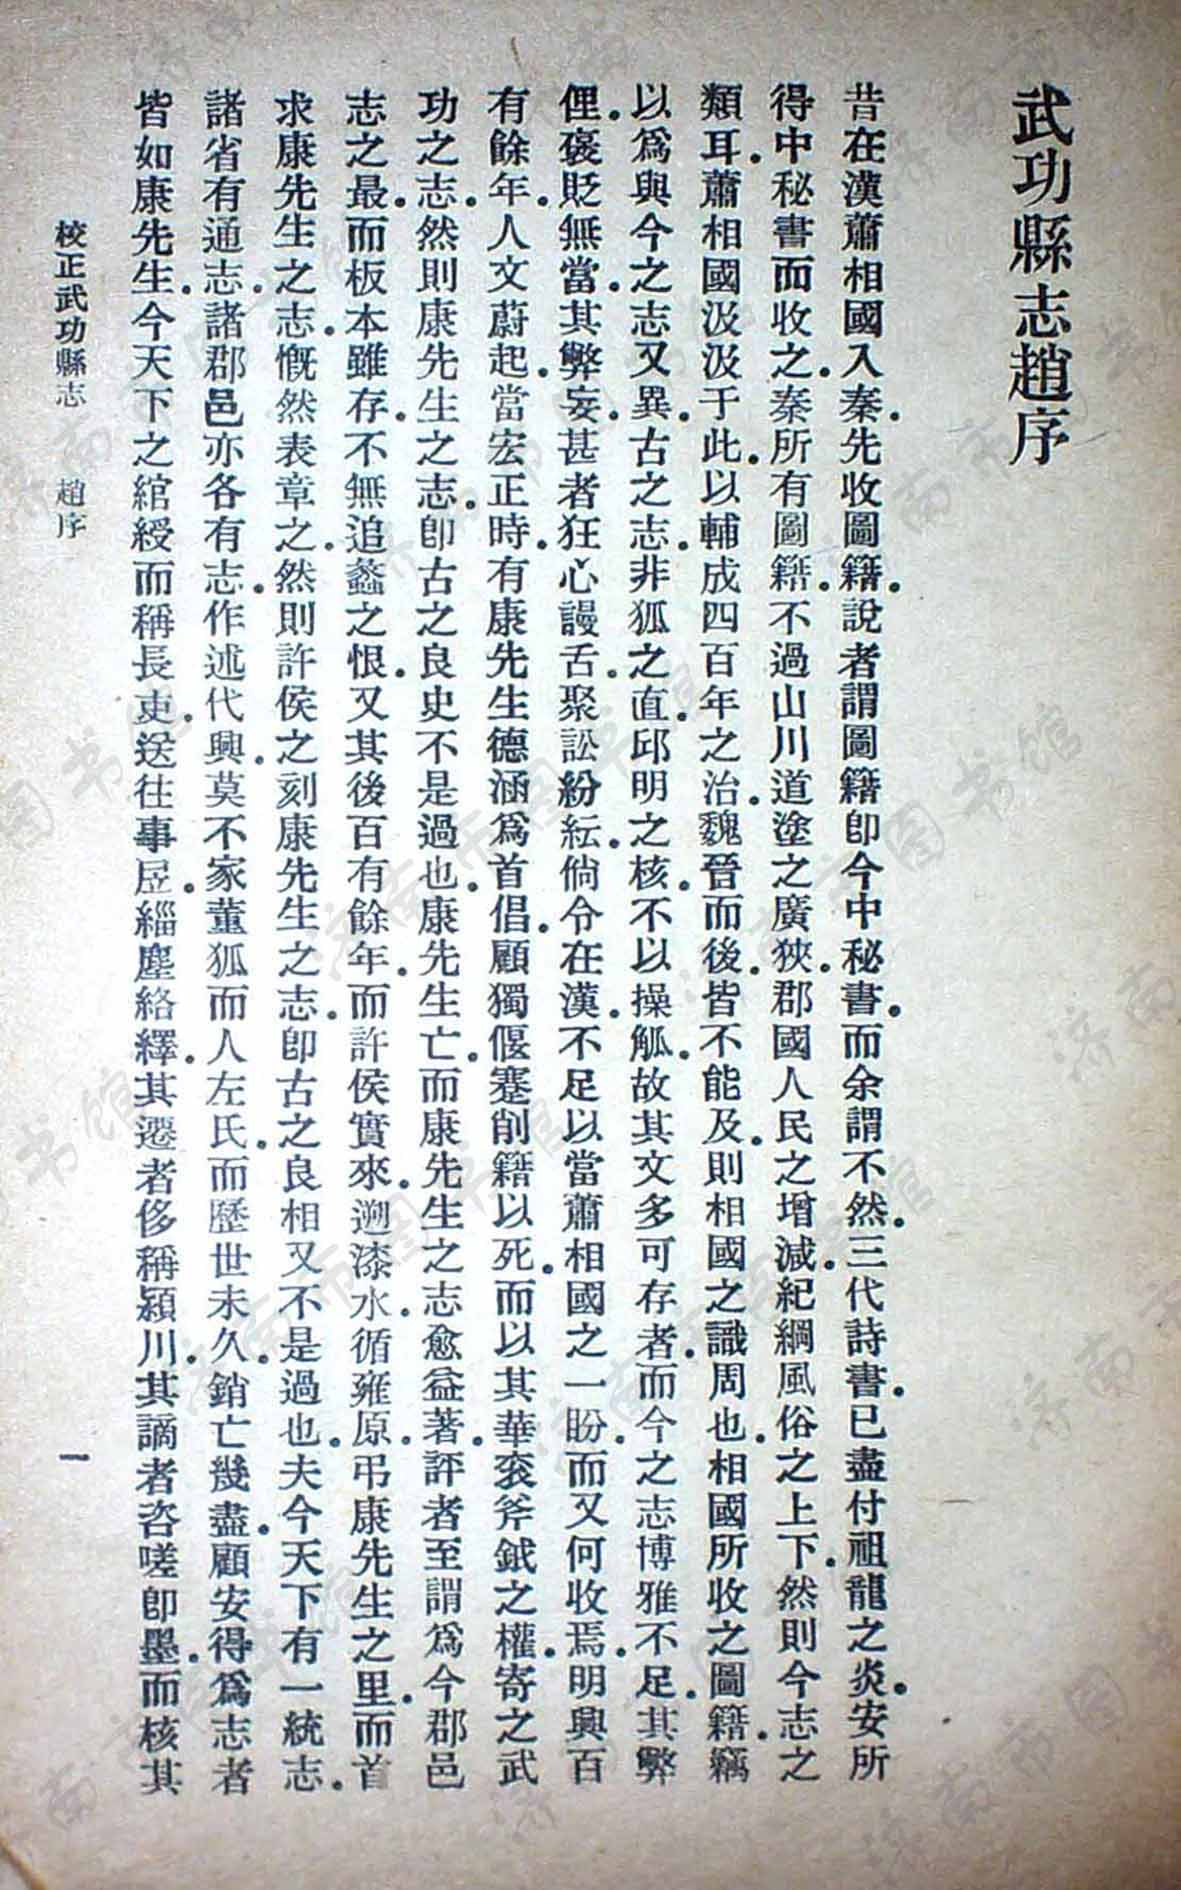 武功縣志趙序
昔在漢蕭相國入秦。先收圖籍。說者謂圖籍卽今中秘書。而余謂不然。三代詩書。已盡付祖龍之炎。安所
得中秘書而收之。秦所有圖籍。不過山川道塗之廣狹。郡國人民之增減。紀綱風俗之上下。然則今志之
類耳。蕭相國汲汲于此。以輔成四百年之治。魏晉而後。皆不能及。則相國之識周也。相國所收之圖籍。竊
以爲與今之志又異。古之志。非狐之直。邱明之核。不以操觚。故其文多可存者。而今之志博雅不足。其弊
俚。褒貶無當。其弊妄。甚者狂心謾舌。聚訟紛紜。倘令在漢。不足以當蕭相國之一盼。而又何收焉。明興百
有餘年。人文蔚起。當宏正時。有康先生德涵爲首倡。顧獨偃蹇削籍以死。而以其華袞斧鉞之權。寄之武
功之志。然則康先生之志。卽古之良史不是過也。康先生亡。而康先生之志愈益著。評者至謂爲今郡邑
志之最。而板本雖存。不無追蠡之恨。又其後百有餘年。而許侯實來。遡漆水。循雍原。弔康先生之里。而首
求康先生之志。慨然表章之。然則許侯之刻康先生之志。卽古之良相又不是過也。夫今天下有一統志。
諸省有通志。諸郡邑亦各有志。作述代興。莫不家董狐而人左氏。而歷世未久。銷亡幾盡。顧安得爲志者
皆如康先生。今天下之綰綬而稱長吏。送往事居。緇塵絡繹。其遷者侈稱潁川。其謫者咨嗟卽墨。而核其
校正武功縣志　趙序　一
濟南市图书馆